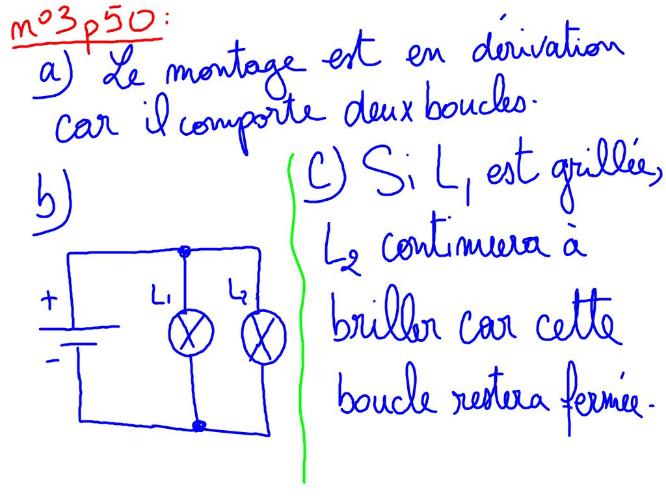 n°3 p50:
a) Le montage est en dérivation
car il comporte deux boucles.
b)
+
-
L₁
L₂
c) Si L₁ est grillée,
L₂ continuera à
briller car cette
boucle restera fermée.